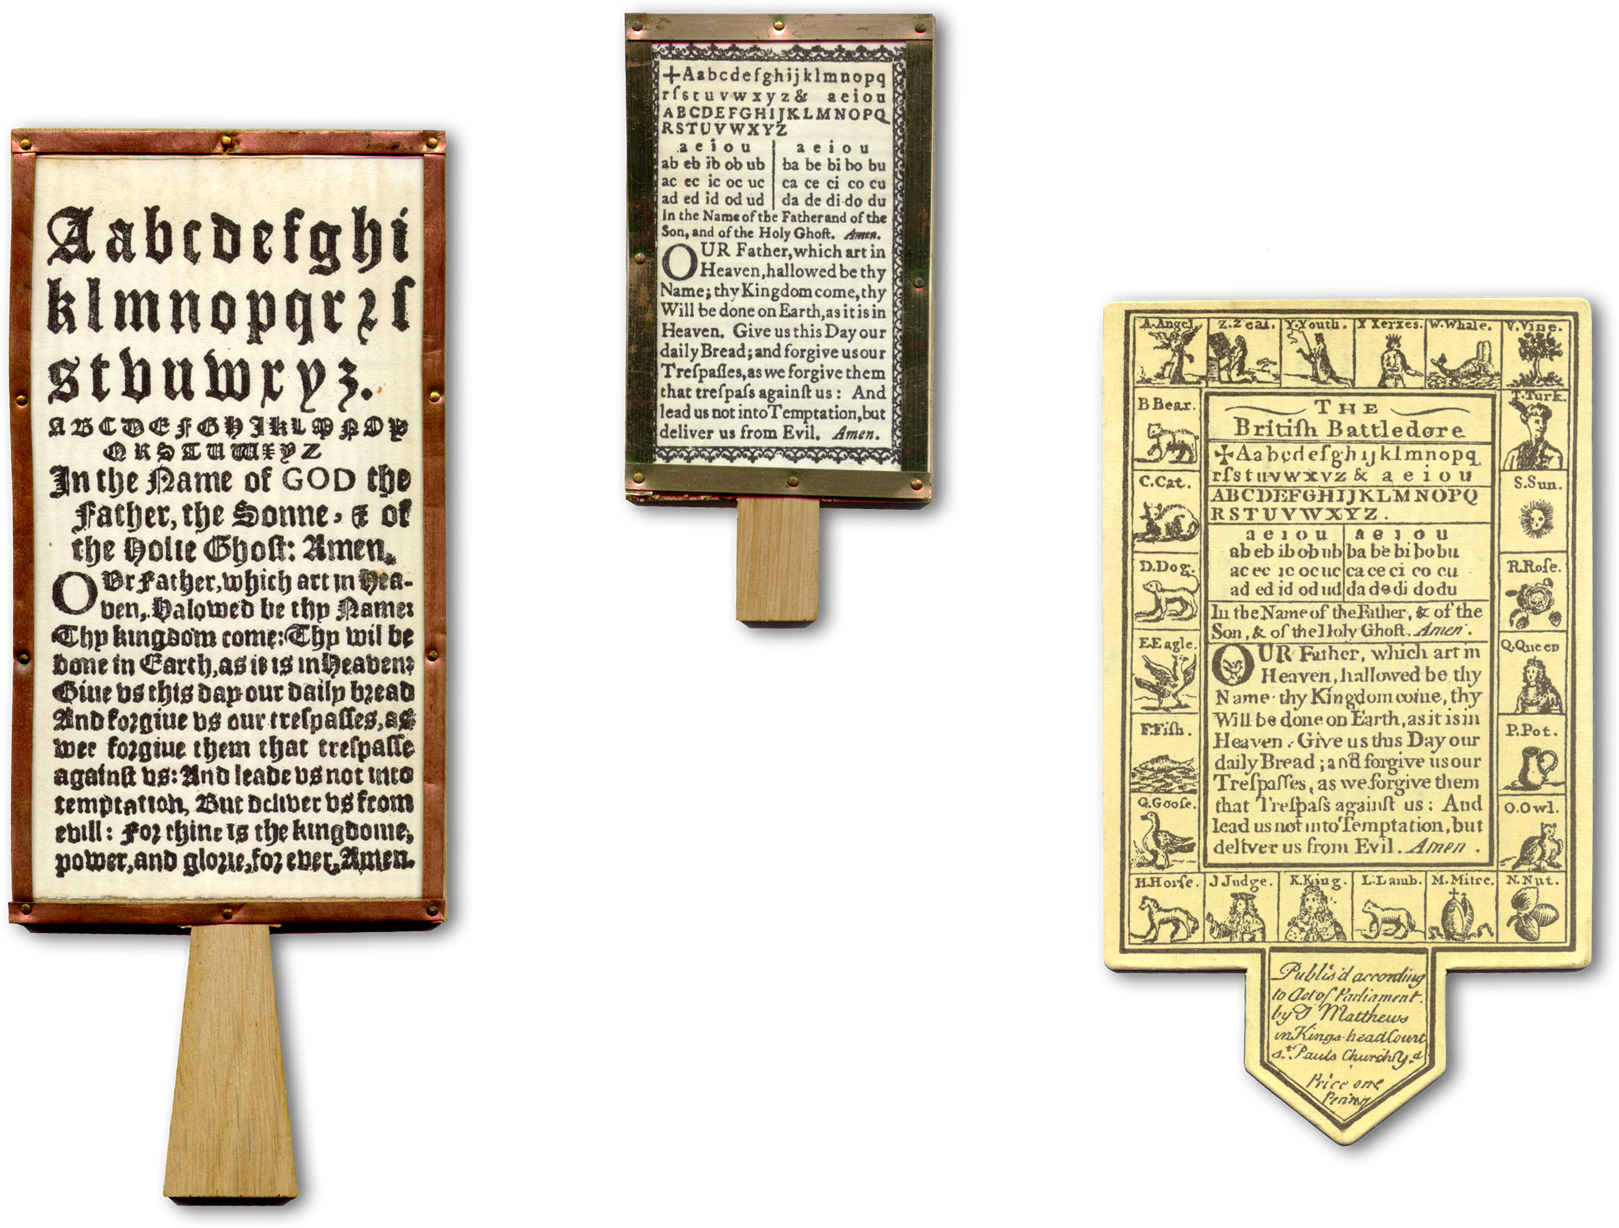 Aabcdefghi
klmnopqrꝛſ
stvuwxyz.
ABCDEFGHIJKLMNOP
QRSTUWXYZ
In the Name of GOD the
Father, the Sonne, & of
the Holie Ghoſt: Amen.
OVr Father, which art in Hea-
ven, Halowed be thy Name:
Thy kingdom come: Thy wil be
done in Earth, as it is in Heaven:
Giue vs this day our daily bread
And forgiue vs our treſpaſſes, as
wee forgiue them that treſpaſſe
againſt vs: And leade vs not into
temptation, But deliver vs from
evill: For thine is the kingdome,
power, and glorie, for ever, Amen.
+Aabcdefghijklmnopq
rſstuvwxyz& aeiou
ABCDEFGHIJKLMNOPQ
RSTUVWXYZ
a e i o u a e i o u
ab eb ib ob ub ba be bi bo bu
ac ec ic oc uc ca ce ci co cu
ad ed id od ud da de di do du
In the Name of the Father and of the
Son, and of the Holy Ghoſt. Amen.
OUR Father, which art in
Heaven, hallowed be thy
Name; thy Kingdom come, thy
Will be done on Earth, as it is in
Heaven. Give us this Day our
daily Bread; and forgive us our
Treſpaſſes, as we forgive them
that treſpaſs againſt us: And
lead us not into Temptation, but
deliver us from Evil. Amen.
A.Angel. Z.Zeal. Y.Youth. X Xerxes. W.Whale. V.Vine.
B Bear.
C.Cat.
D.Dog.
E.Eagle.
F.Fiſh.
G.Gooſe.
H.Horſe. J Judge. K.King. L.Lamb. M.Mitre. N.Nut.
T.Turk.
S.Sun.
R.Roſe.
Q.Queen
P.Pot.
O.Owl.
THE
Britiſh Battledore
+Aabcdefghijklmnopq
rſstuvwxyz & a e i o u
ABCDEFGHIJKLMNOPQ
RSTUVWXYZ.
a e i o u a e i o u
ab eb ib ob ub ba be bi bo bu
ac ec ic oc uc ca ce ci co cu
ad ed id od ud da de di do du
In the Name of the Father, & of the
Son, & of the Holy Ghoſt. Amen.
OUR Father, which art in
Heaven, hallowed be thy
Name thy Kingdom come, thy
Will be done on Earth, as it is in
Heaven. Give us this Day our
daily Bread; and forgive us our
Treſpaſſes, as we forgive them
that Treſpaſs againſt us: And
lead us not into Temptation, but
deliver us from Evil. Amen.
Publis'd according
to Act of Parliament.
by J Matthews
in Kings-head Court
St. Pauls Church Yd
Price one
Penny